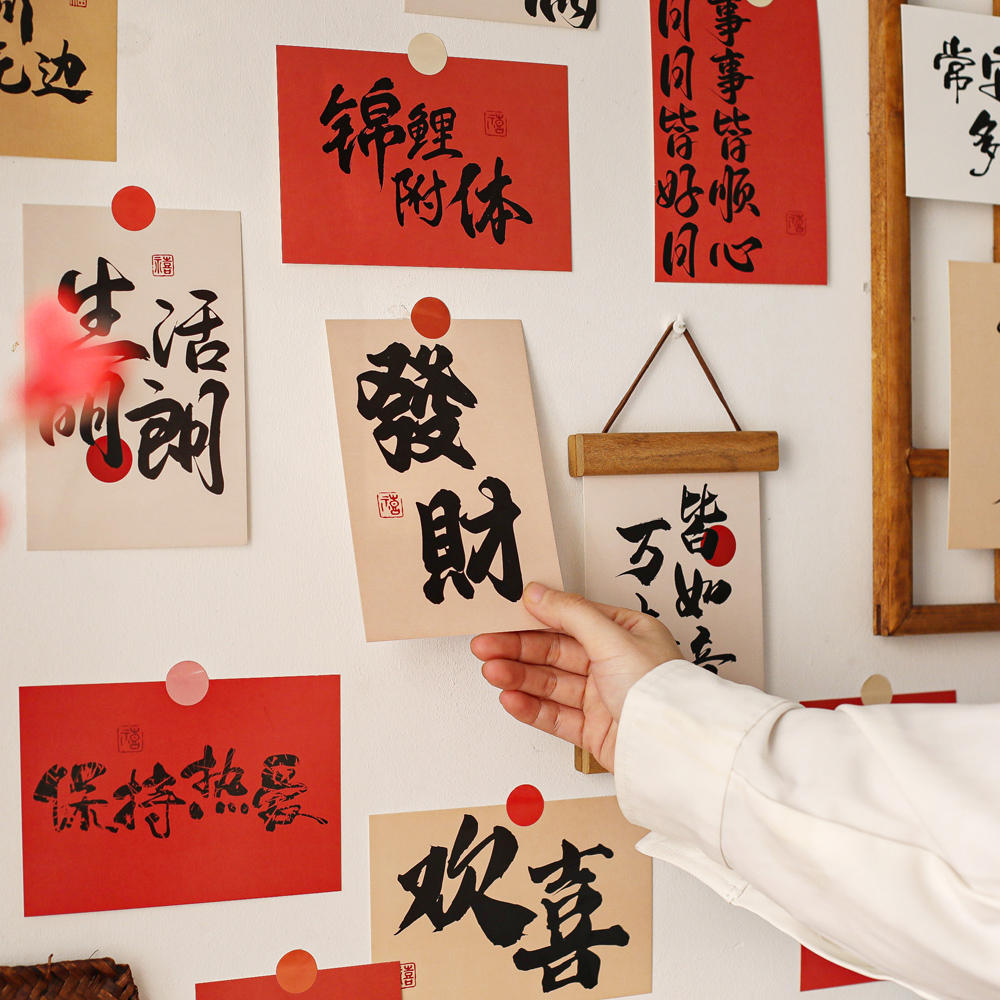 边
锦鲤
附体
事事皆顺心
日日皆好日
常
多
生活
明朗
禧
發
財
禧
万
皆如意
保持热爱
欢喜